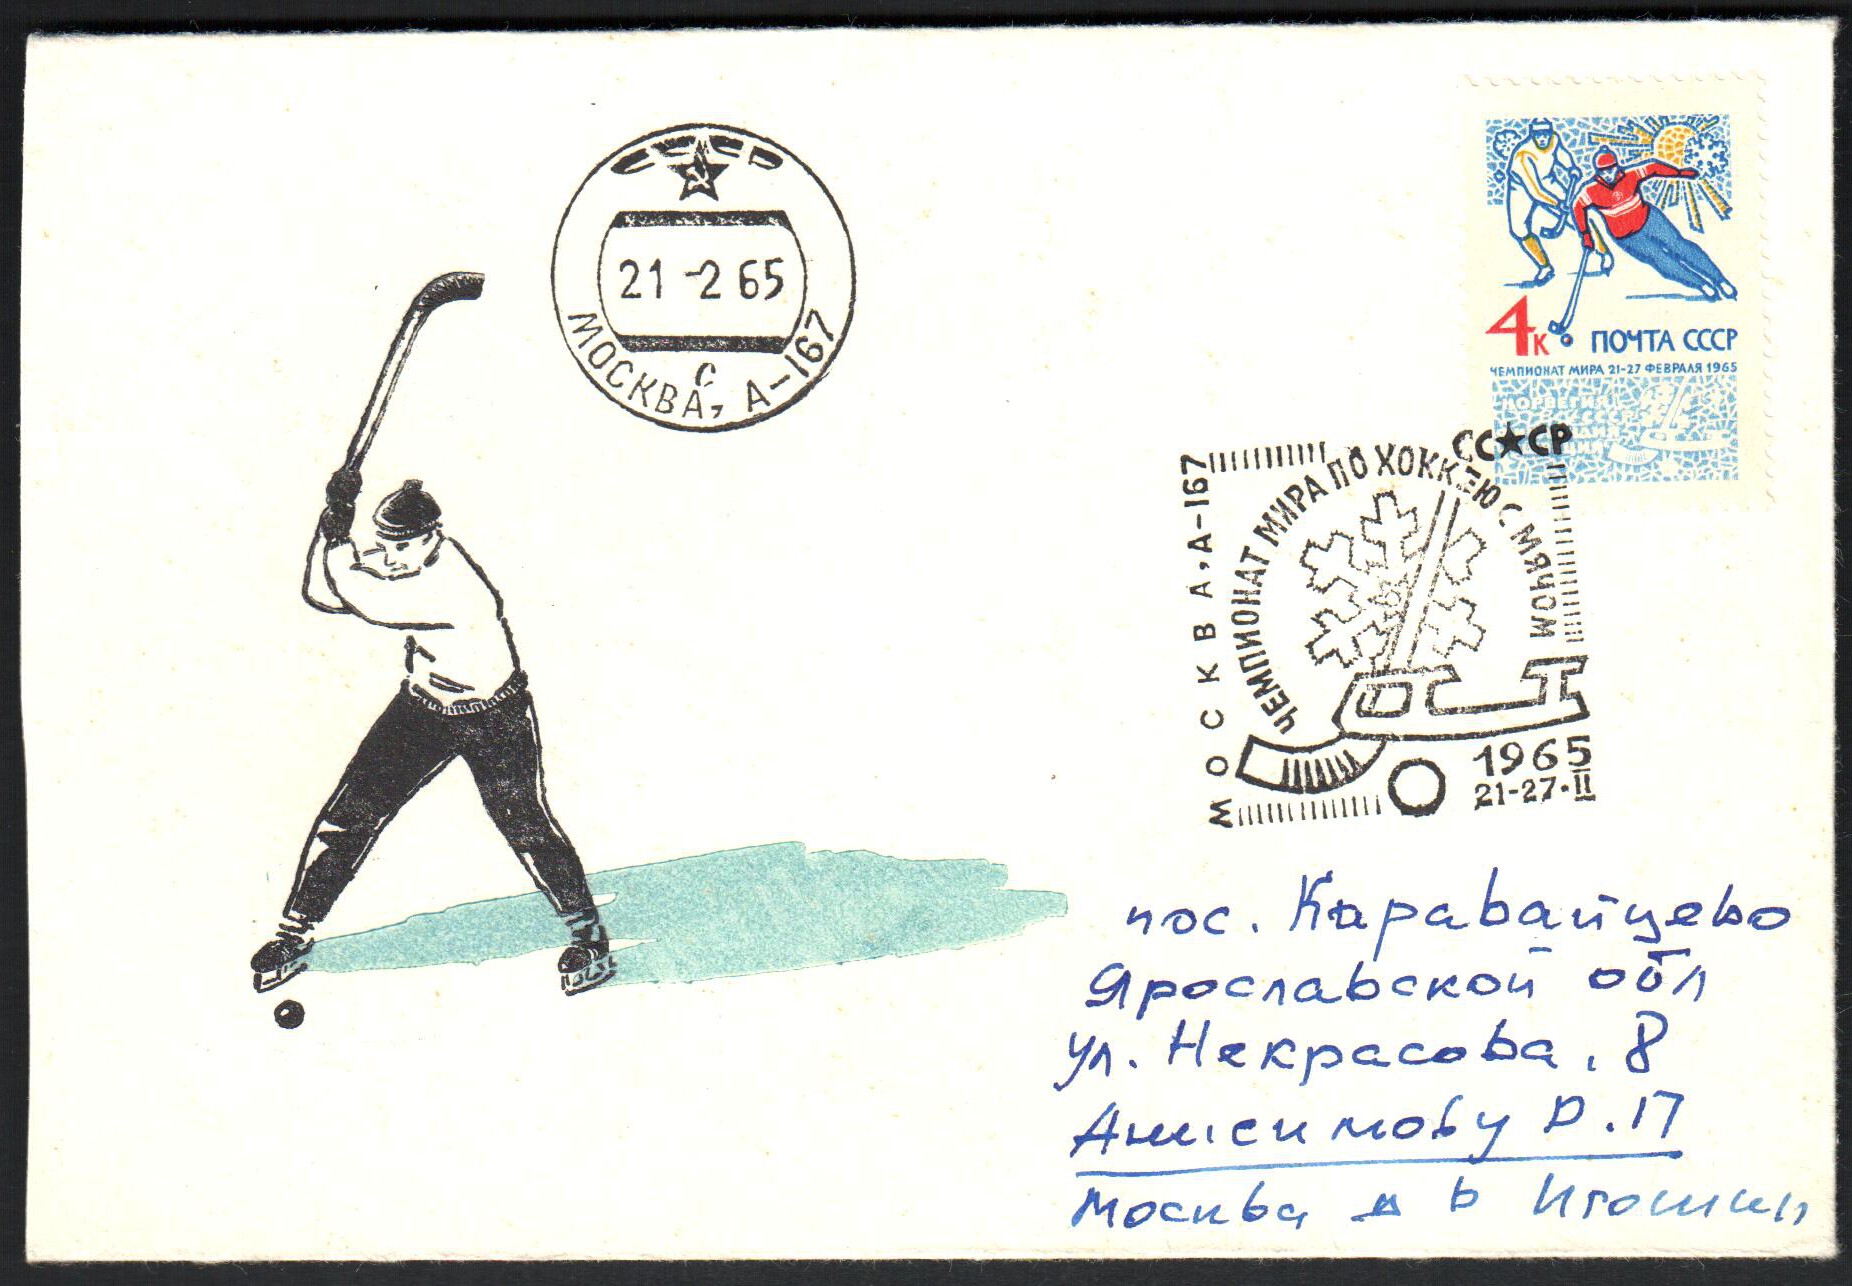 СССР
21-2 65
с
МОСКВА, А-167
4к ПОЧТА СССР
ЧЕМПИОНАТ МИРА 21-27 ФЕВРАЛЯ 1965
НОРВЕГИЯ
СССР
МОСКВА, А-167
СССР
ЧЕМПИОНАТ МИРА ПО ХОККЕЮ С МЯЧОМ
1965
21-27·II
пос. Каравайцево
Ярославской обл
ул. Некрасова. 8
Анисимову
Москва